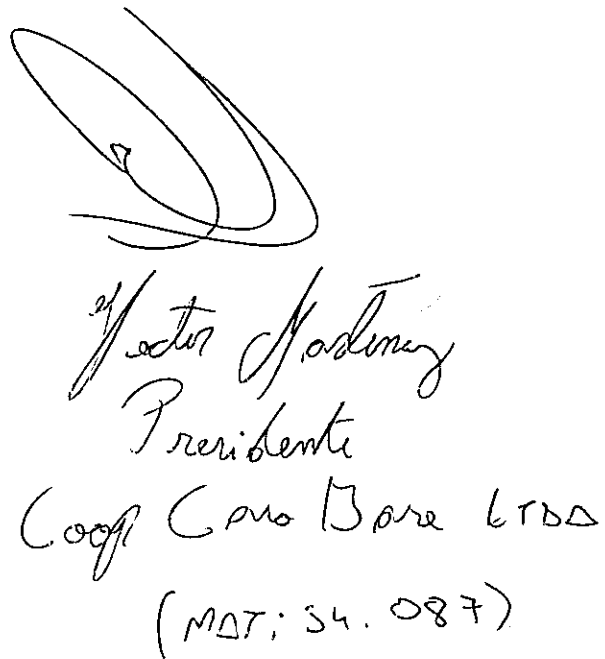 Hector Martinez
Presidente
Coop Casa Base LTDA
(MAT: 34.087)